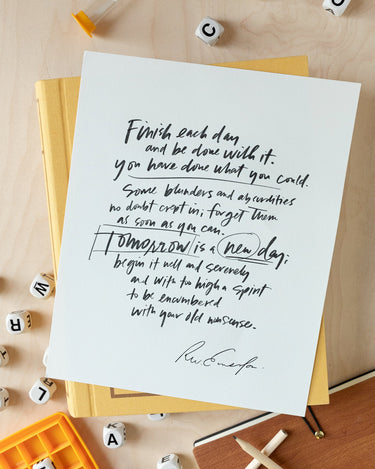 C
Finish each day
and be done with it.
you have done what you could.
Some blunders and absurdities
no doubt crept in; forget them
as soon as you can.
Tomorrow is a new day;
begin it well and serenely
and with too high a spirit
to be encumbered
with your old nonsense.
R.W. Emerson.
W
R
L
A
W